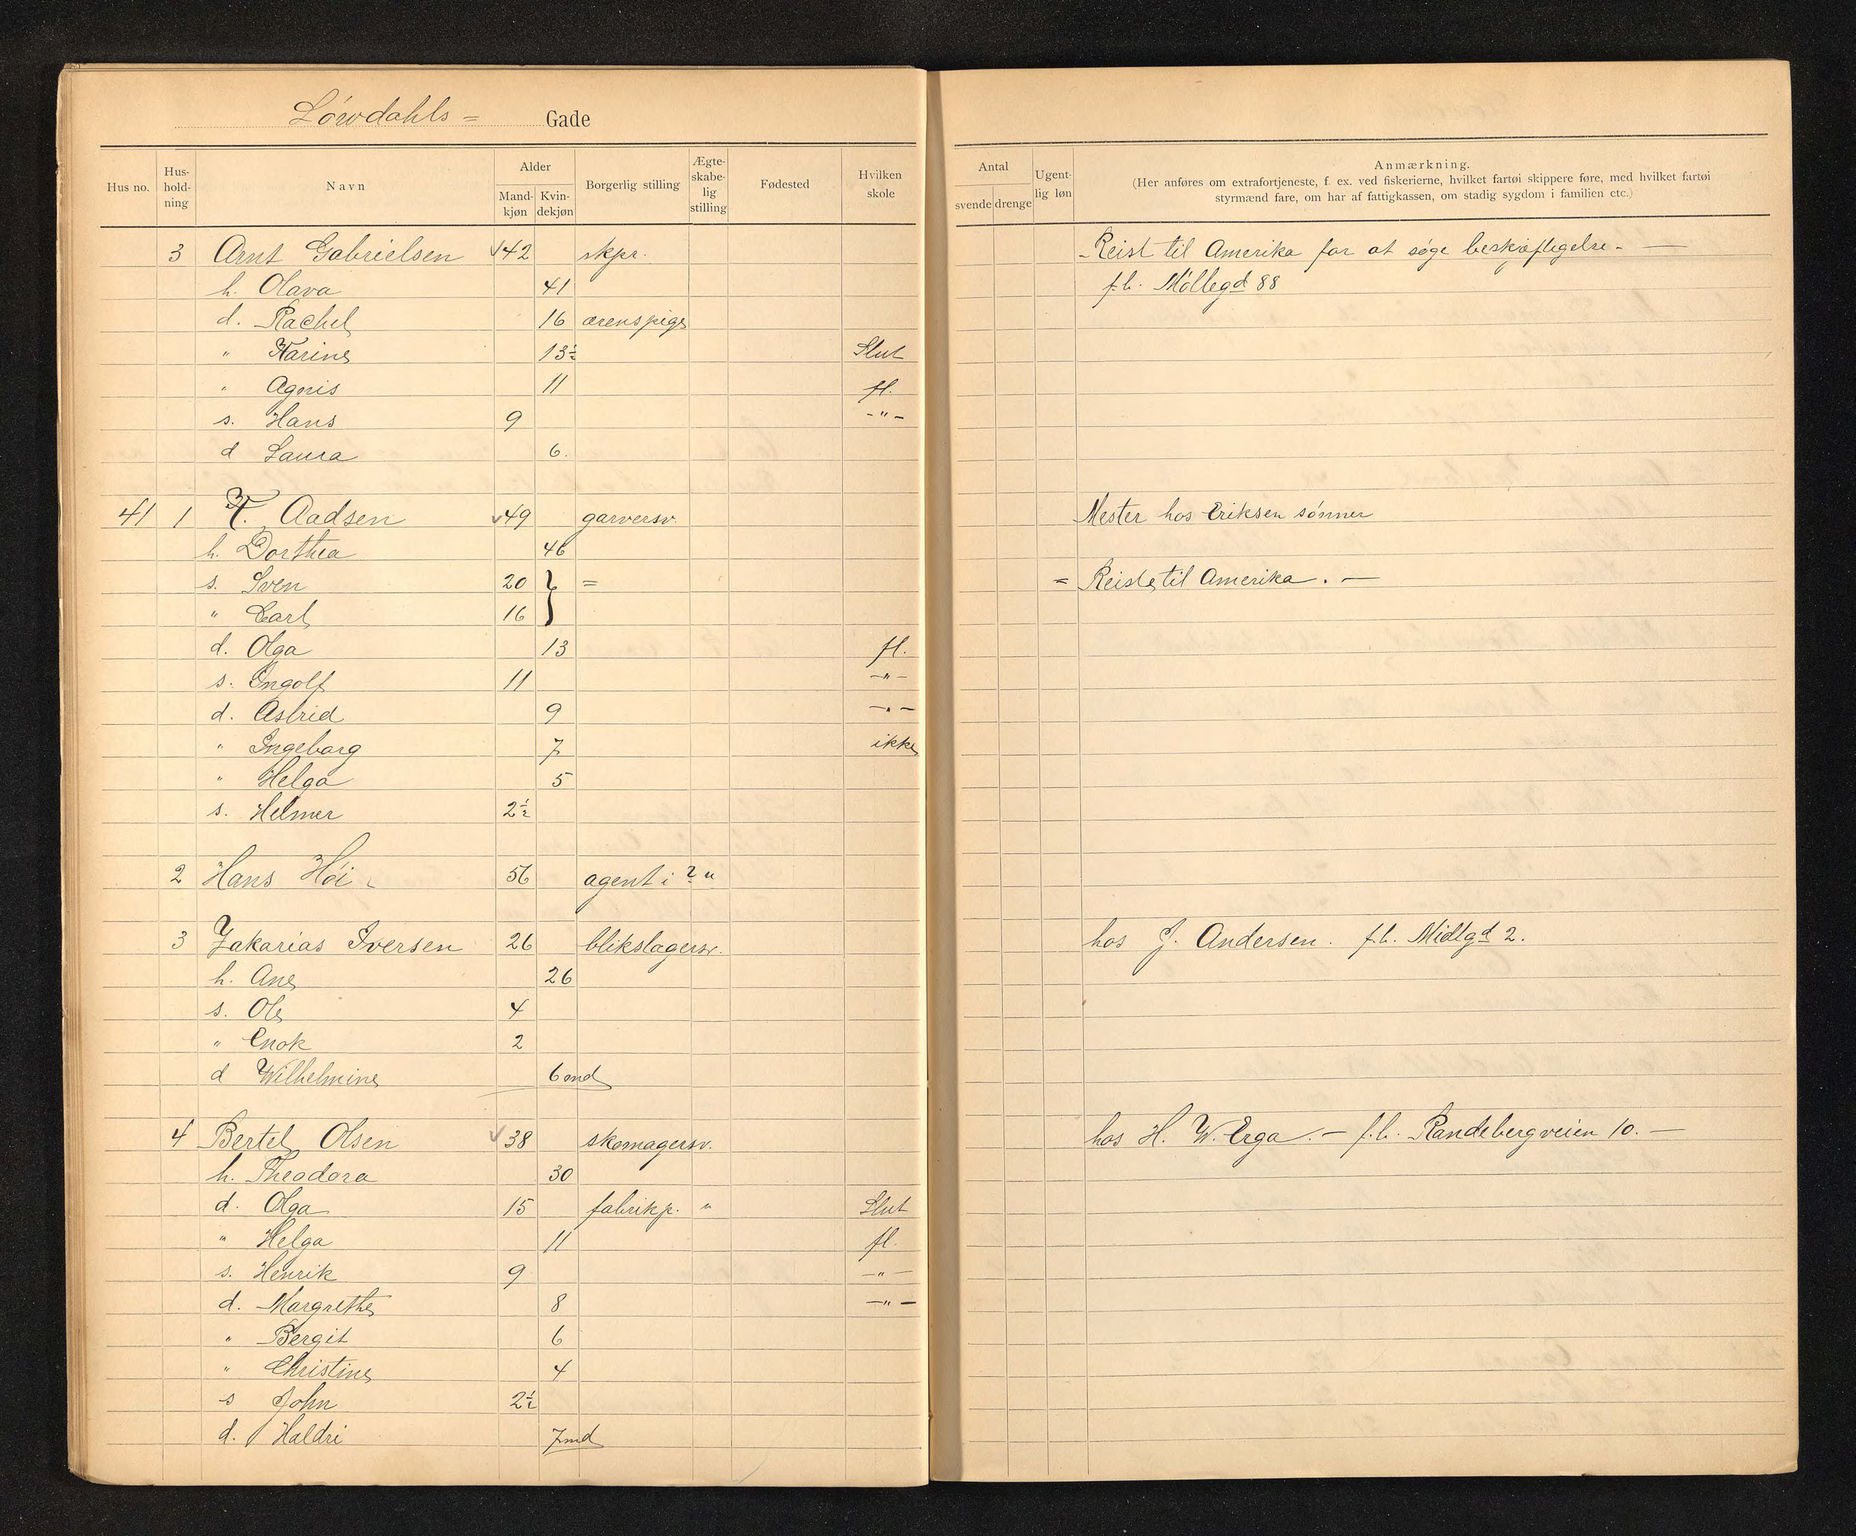 Løwdahls = Gade
Hus no. Hus-hold-ning Navn Alder Mand-kjøn Kvin-dekjøn Borgerlig stilling Ægte-skabe-lig stilling Fødested Hvilken skole
Antal svende drenge Ugent-lig løn Anmærkning.
(Her anføres om extrafortjeneste, f. ex. ved fiskerierne, hvilket fartøi skippere føre, med hvilket fartøi
styrmænd fare, om har af fattigkassen, om stadig sygdom i familien etc.)
3 Arnt Gabrielsen √42 skpr. - Reist til Amerika for at søge beskjæftigelse. —
h. Olava 41 f.h. Møllegd 88
d. Rachel 16 ærenspige
" Karine 13½ Slut
" Agnis 11 fl.
s. Hans 9 -"-
d Laura 6.
41 1 T. Aadsen √49 garversv. Mester hos Eriksen sønner
h. Dorthea 46
s. Sven 20 } = = Reist til Amerika. —
" Carl 16
d. Olga 13 fl.
s. Ingolf 11 -"-
d. Astrid 9 -"-
" Ingeborg 7 ikke
" Helga 5
s. Helmer 2½
2 Hans Høi - 56 agent i ? "
3 Zakarias Iversen 26 blikslagersv. hos J. Andersen. f.h. Midlgd 2.
h. Ane 26
s. Ole 4
" Enok 2
d Wilhelmine 6 md
4 Bertel Olsen √38 skomagersv. hos H. W. Erga. — f.h. Randebergveien 10. —
h. Theodora 30
d. Olga 15 fabrikp. " Slut
" Helga 11 fl.
s. Henrik 9 -"-
d. Margrethe 8 -"-
" Bergit 6
" Christine 4
s John 2½
d. Haldri 7 md